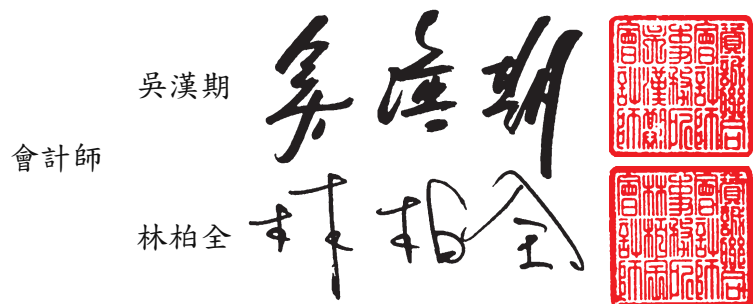 吳漢期 吳漢期
會計師
林柏全 林柏全
資誠聯合
會計師
事務所
吳漢期
會計師
資誠聯合
會計師
事務所
林柏全
會計師